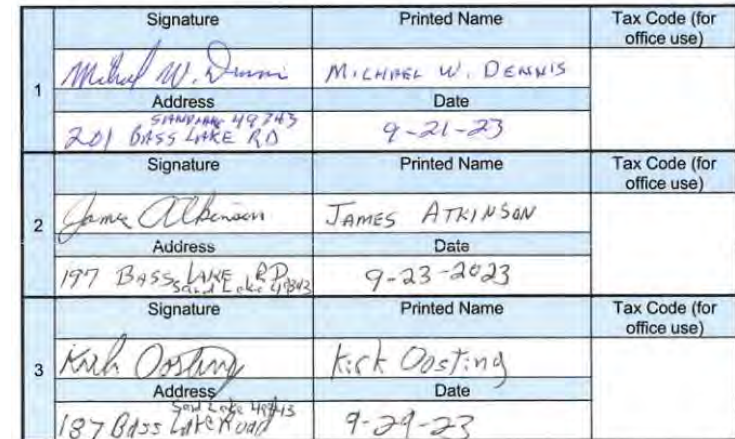 Signature Printed Name Tax Code (for office use)
1
Michael W. Dennis MICHAEL W. DENNIS
Address Date
49343
201 BASS LAKE RD 9-21-23
Signature Printed Name Tax Code (for office use)
2
James Atkinson JAMES ATKINSON
Address Date
197 BASS LAKE RD 9-23-2023
Sand Lake 49343
Signature Printed Name Tax Code (for office use)
3
Kirk Oosting Kirk Oosting
Address Date
Sand Lake 49343
187 Bass Lake Road 9-29-23